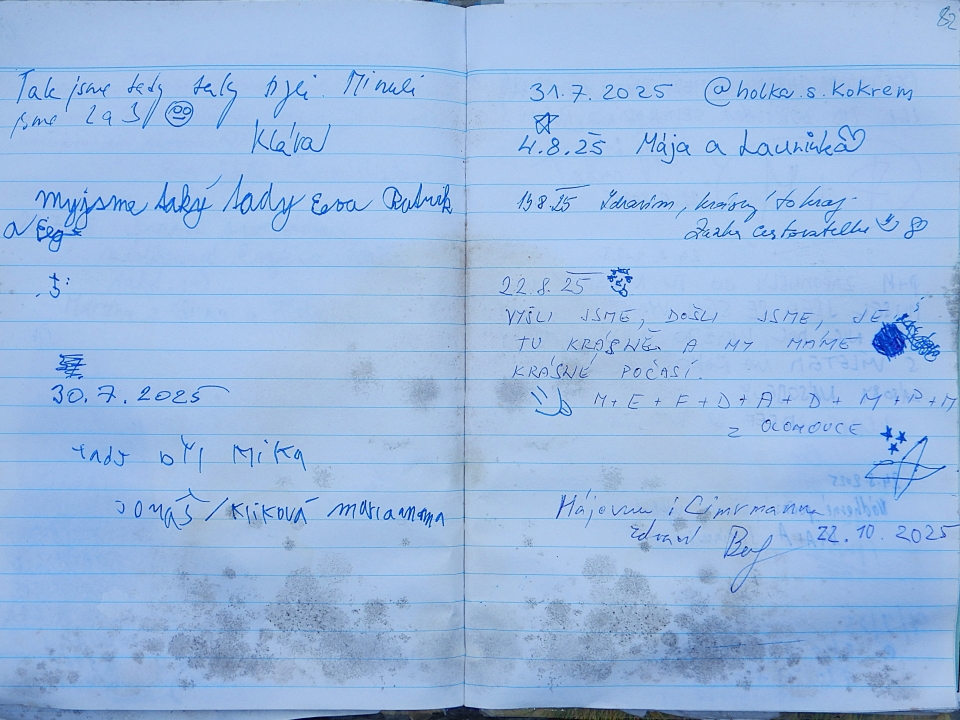 Tak jsme tady taky byli. Minuli
jsme 2 a 3/
Klára
myjsme taky tady Eva Patrik
a
30.7.2025
tady byl Mika
Jonáš / Kliková marianna
82
31.7.2025 @holka.s.kokrem
4.8.25 Mája a Launinka
19.8.25 Zdravím, krásný to kraj.
Zuzka cestovatelka
22.8.25
VYŠLI JSME, DOŠLI JSME, JE
TU KRÁSNĚ A MY MÁME
KRÁSNÉ POČASÍ.
M + E + F + D + A + D + M + P + M
Z OLOMOUCE
Májovna i Cimrmanna
22.10.2025